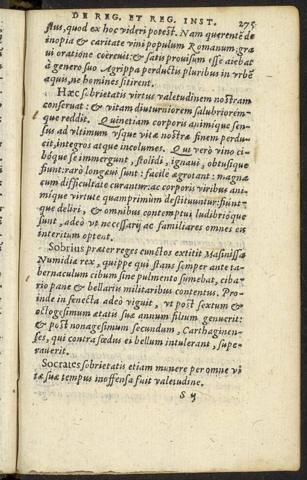 DE REG. ET REG. INST. 275
stus, quod ex hoc videri potest. Nam querentē de
inopia & caritate vini populum Romanum: gra
ui oratione coërcuit: & satis prouisum esse aiebat
à genero suo Agrippa perductis pluribus in vrbē
aquis, ne homines sitirent.
Hæc sobrietatis virtus valetudinem nostram
conseruat: & vitam diuturniorem salubriorém-
que reddit. Quinetiam corporis animique sen-
sus ad vltimum vsque vitæ nostræ finem perdu-
cit, integros atque incolumes. Qui verò vino ci-
bóque se immergunt, stolidi, ignaui, obtusique
fiunt: rarò longæui sunt: facilè ægrotant: magnæ
cum difficultate curantur: ac corporis viribus ani
mique virtute quamprimùm destituuntur: fiunt-
que deliri, & omnibus contemptui ludibrióque
sunt, adeò vt necessarij ac familiares omnes eis
interitum optent.
Sobrius præter reges cunctos extitit Masinissa
Numidiæ rex, quippe qui stans semper ante ta-
bernaculum cibum sine pulmento sumebat, ciba-
rio pane & bellariis militaribus contentus. Pro-
inde in senecta adeò viguit, vt post sextum &
octogesimum ætatis suæ annum filium genuerit:
& post nonagesimum secundum, Carthaginen-
ses, qui contra fœdus ei bellum intulerant, supe-
rauerit.
Socrates sobrietatis etiam munere per omne vi
tæ suæ tempus inoffensa fuit valetudine.
S ij